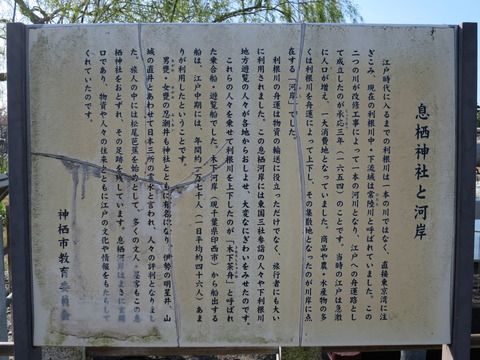 息栖神社と河岸
江戸時代に入るまでの利根川は一本の川ではなく、直接東京湾に注
ぎこみ、現在の利根川中・下流域は常陸川と呼ばれていました。この
二つの川が改修工事によって一本の河川となり、江戸への舟運路とし
て成立したのが承応三年(一六五四)のことです。当時の江戸は急激
に人口が増え、一大消費地となっていました。商品や農・水産物の多
くは利根川を舟運によって上下し、その集散地となったのが川岸に点
在する「河岸」でした。
利根川の舟運は物資の輸送に役立っただけでなく、旅行者にも大い
に利用されました。この息栖河岸には東国三社参詣の人々や下利根川
地方遊覧の人々が各地からおしよせ、大変なにぎわいをみせたのです。
これらの人々を乗せて利根川を上下したのが「木下茶舟」と呼ばれ
た乗合船・遊覧船でした。木下河岸(現千葉県印西市)から船出する
船は、江戸中期には、年間約一万七千人(一日平均約四十六人)あま
りが利用したということです。
男甕・女甕の忍潮井も神社とともに有名になり、伊勢の明星井、山
城の直井とあわせて日本三所の霊水と言われ、人々の評判となりまし
た。旅人の中には松尾芭蕉を始めとして、多くの文人・墨客もこの息
栖神社をおとずれ、その足跡を残しています。息栖河岸はまさに玄関
口であり、物資や人々の往来とともに江戸の文化や情報をもたらして
くれていたのです。
神栖市教育委員会